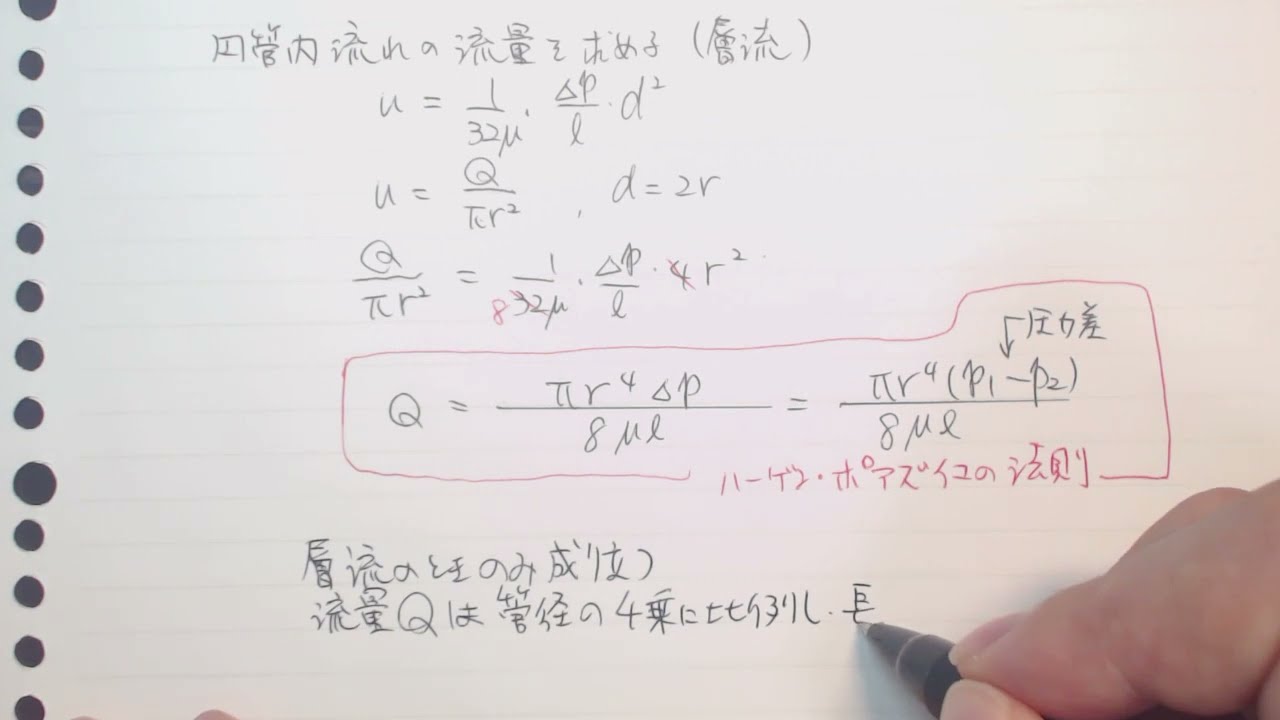 円管内流れの流量を求める(層流)
u = 1/32μ · Δp/l · d²
u = Q/πr² , d = 2r
Q/πr² = 1/32μ · Δp/l · 4r²
8
圧力差
Q = πr⁴Δp/8μl = πr⁴(p₁-p₂)/8μl
ハーゲン・ポアズイユの法則
層流のときのみ成り立つ
流量Qは管径の4乗に比例し.長